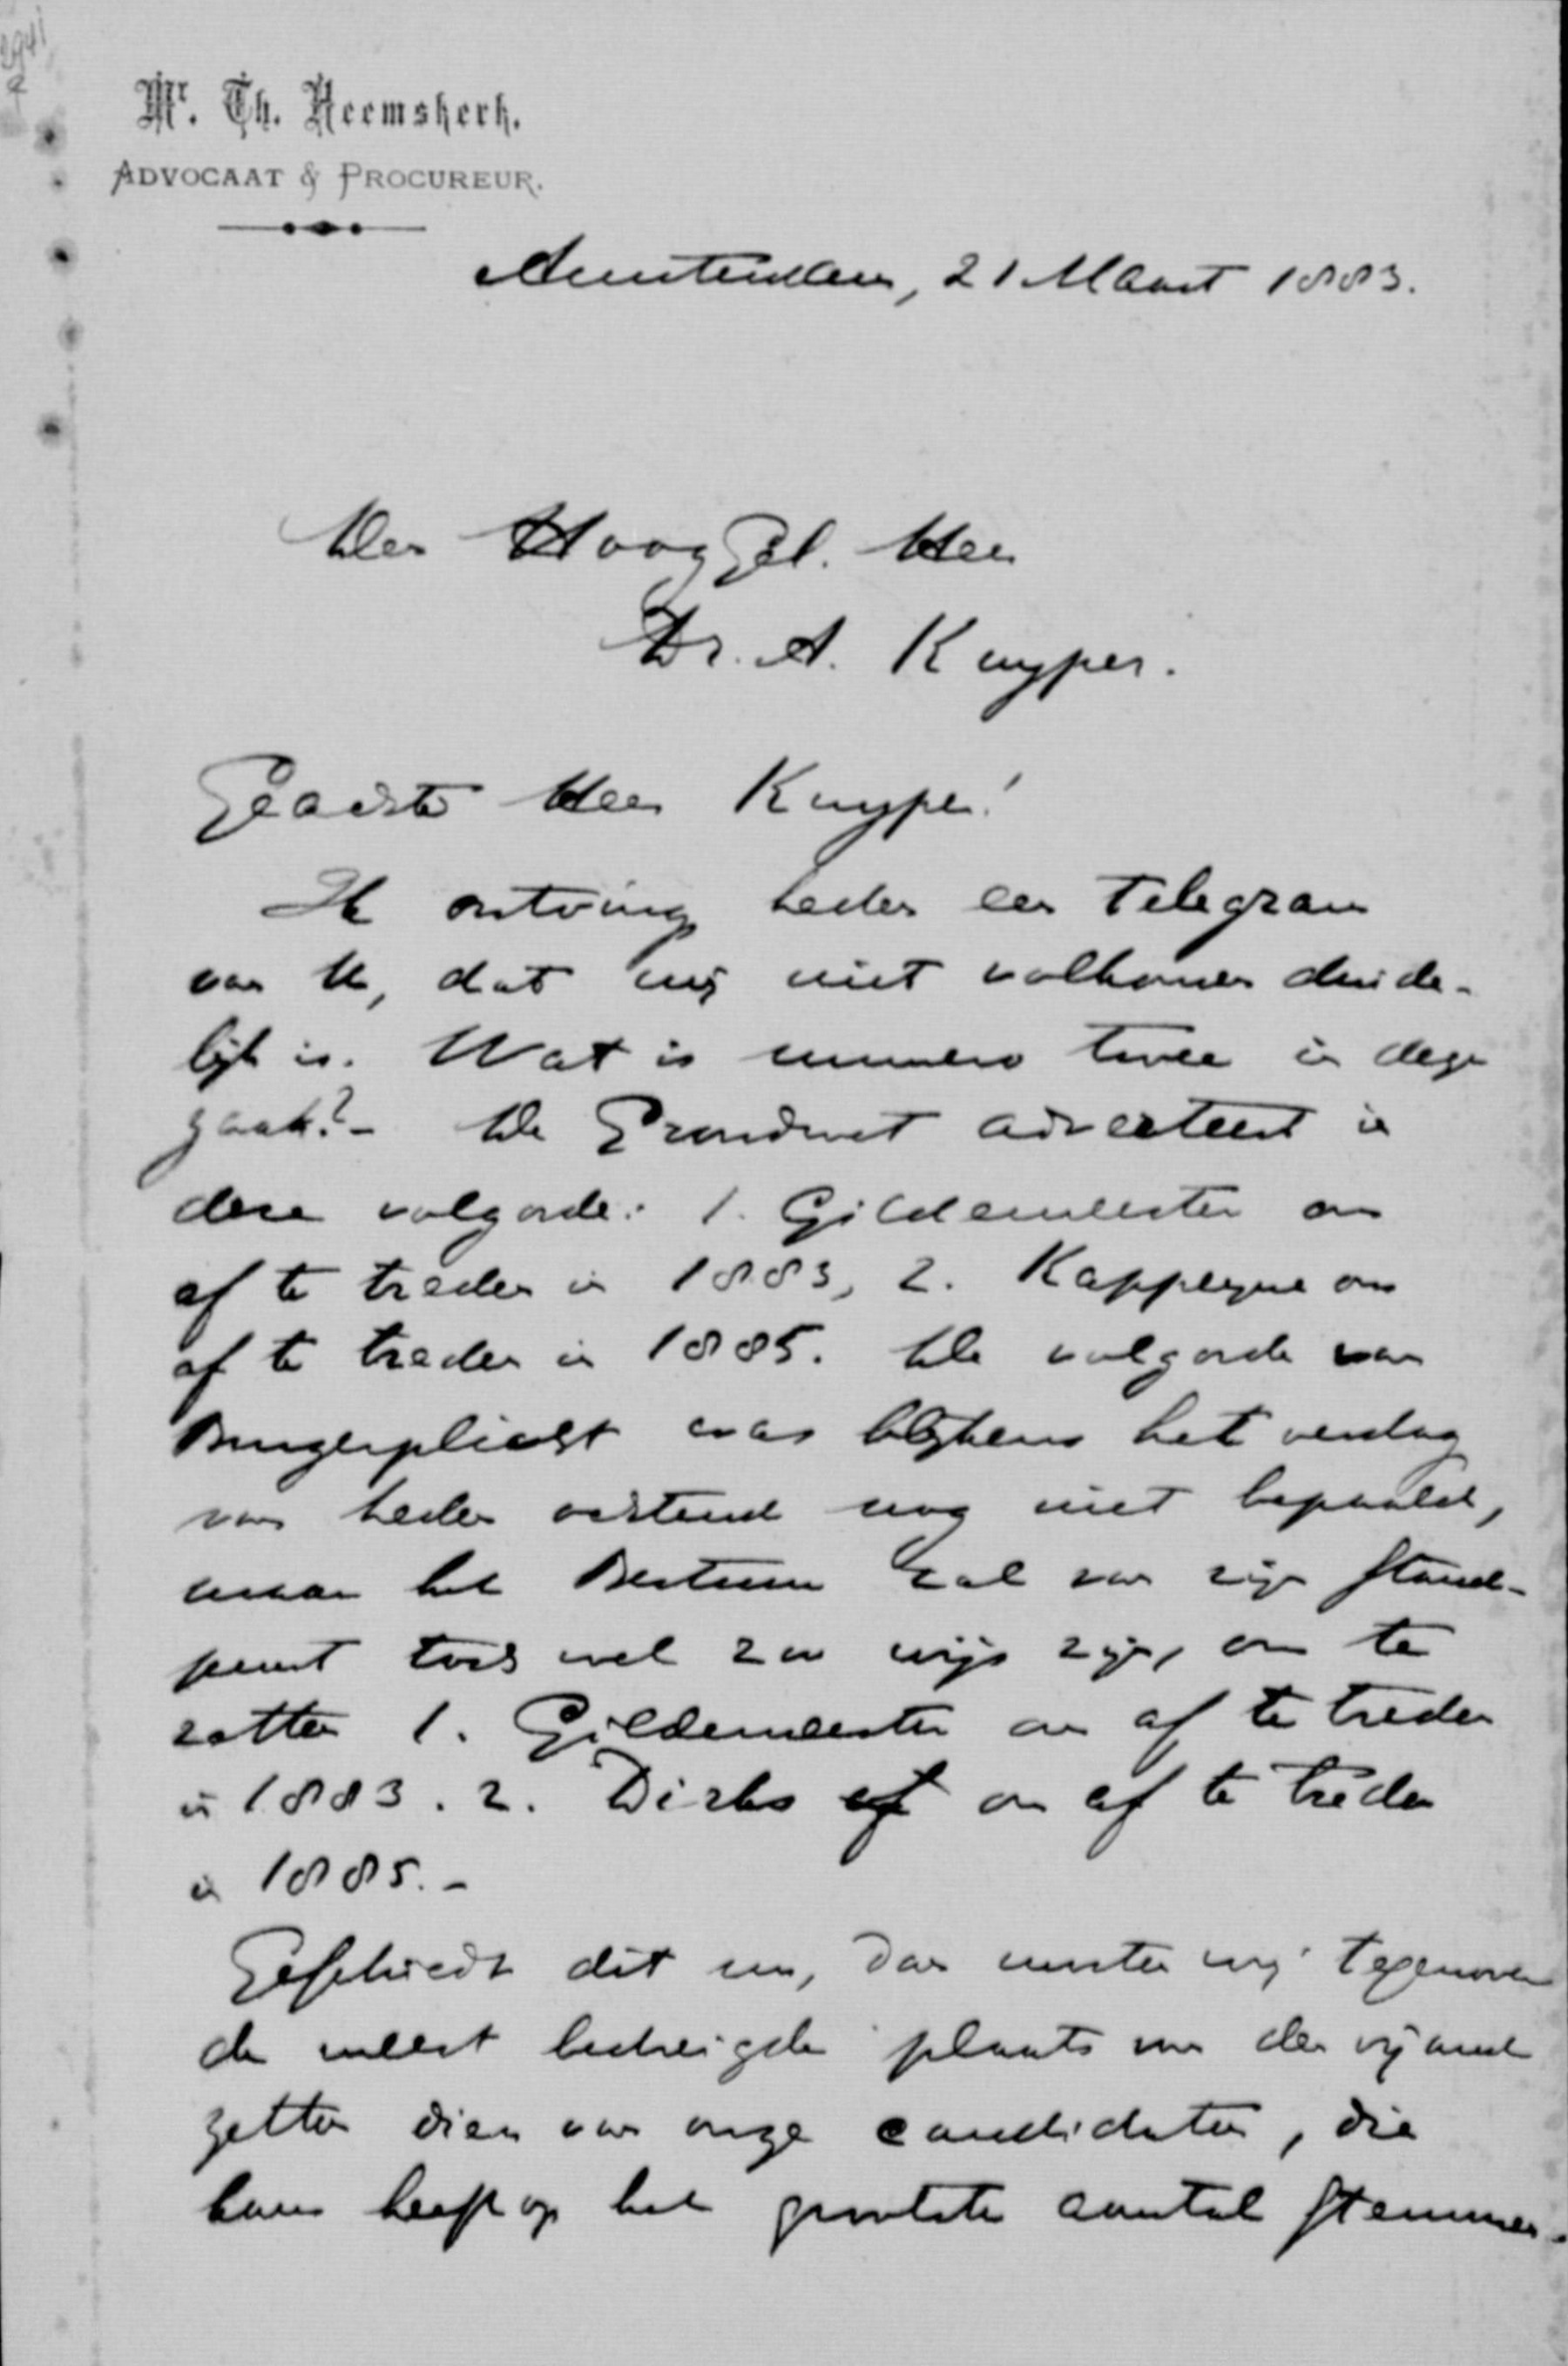 Mr. Th. Heemskerk.
ADVOCAAT & PROCUREUR.
Amsterdam, 21 Maart 1883.
Den HoogGel. Heer
Dr. A. Kuyper.
Geachte Heer Kuyper!
Ik ontving heden een telegram
van U, dat mij niet volkomen duide-
lijk is. Wat is nummero twee in deze
zaak? - De Grondwet adverteert in
deze volgorde: 1. Gildemeester om
af te treden in 1883, 2. Kappeyne om
af te treden in 1885. De volgorde van
Burgerplicht was blijkens het verslag
van heden ochtend nog niet bepaald,
maar het Bestuur zal van zijn stand-
punt toch wel zoo wijs zijn, om te
zetten 1. Gildemeester om af te treden
in 1883. 2. Dirks om af te treden
in 1885. -
Geschiedt dit nu, dan moeten wij tegenover
de meest bedreigde plaats van den vijand
zetten dien van onze candidaten, die
kans heeft op het grootste aantal stemmen.